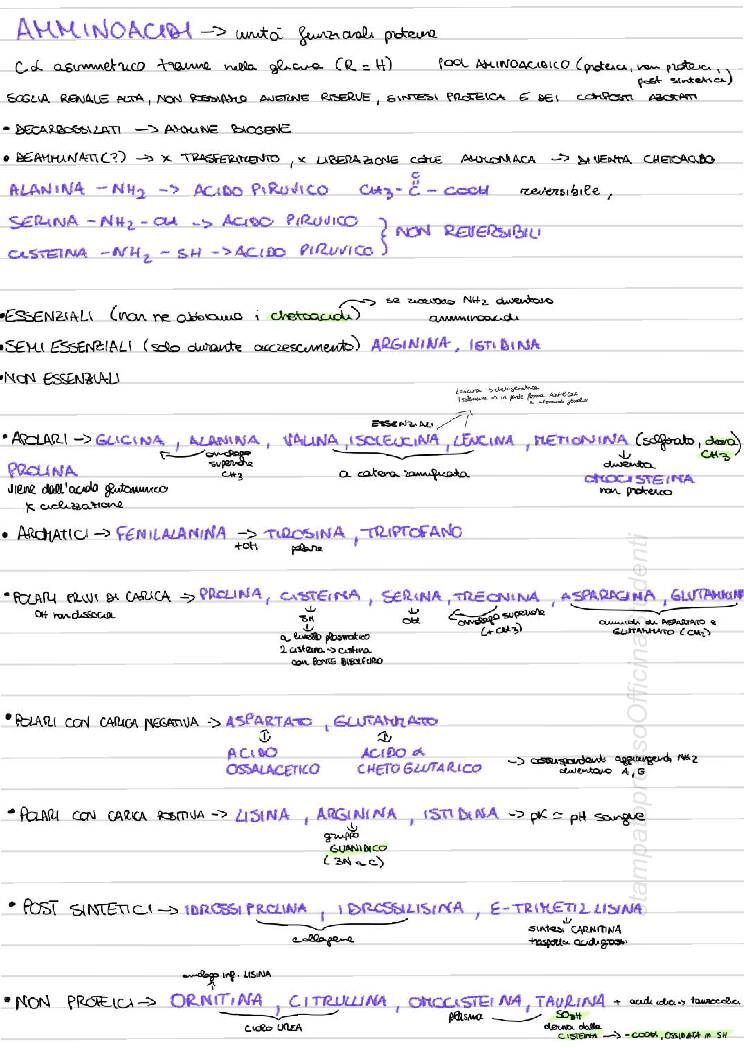 AMMINOACIDI -> unità funzionali proteine
Cα asimmetrico tranne nella glicina (R = H) POOL AMINOACIDICO (proteici, non proteici,
post sintetici)
SOGLIA RENALE ALTA, NON POSSIAMO AVERNE RISERVE, SINTESI PROTEICA E DEI COMPOSTI AZOTATI
• DECARBOSSILATI -> AMMINE BIOGENE
• DEAMMINATI(?) -> x TRASFERIMENTO, x LIBERAZIONE COME AMMONIACA -> DIVENTA CHETOACIDO
ALANINA - NH2 -> ACIDO PIRUVICO CH3 - C - COOH reversibile,
SERINA - NH2 - OH -> ACIDO PIRUVICO
CISTEINA - NH2 - SH -> ACIDO PIRUVICO } NON REVERSIBILI
se ricevono NH2 diventano
• ESSENZIALI (non ne abbiamo i chetoacidi) amminoacidi
• SEMI ESSENZIALI (solo durante accrescimento) ARGININA, ISTIDINA
• NON ESSENZIALI
ESSENZIALI
• APOLARI -> GLICINA, ALANINA, VALINA, ISOLEUCINA, LEUCINA, METIONINA (solforato, dona
CH3)
omologo
superiore
CH3
a catena ramificata
diventa
OMOCISTEINA
non proteico
PROLINA
viene dall'acido glutammico
x ciclizzazione
• AROMATICI -> FENILALANINA -> TIROSINA, TRIPTOFANO
+OH polare
• POLARI PRIVI DI CARICA -> PROLINA, CISTEINA, SERINA, TREONINA, ASPARAGINA, GLUTAMMINA
OH non dissocia
SH
OH
omologo superiore
(+CH3)
ammidi di ASPARTATO e
GLUTAMMATO (CH2)
a livello plasmatico
2 cisteina -> cistina
con PONTE DISOLFURO
• POLARI CON CARICA NEGATIVA -> ASPARTATO, GLUTAMMATO
ACIDO ACIDO α
OSSALACETICO CHETOGLUTARICO -> corrispondenti aggiungendo NH2
diventano A, G
• POLARI CON CARICA POSITIVA -> LISINA, ARGININA, ISTIDINA -> pK ≃ pH sangue
gruppo
GUANIDICO
(3N a C)
• POST SINTETICI -> IDROSSIPROLINA, IDROSSILISINA, E-TRIMETIL LISINA
collagene
sintesi CARNITINA
trasporta acidi grassi
omologo inf. LISINA
• NON PROTEICI -> ORNITINA, CITRULLINA, OMOCISTEINA, TAURINA
CICLO UREA
plasma
SO3H
deriva dalla
CISTEINA -> -COOH, OSSIDATA in SH
StampatopressoOfficinaStudenti